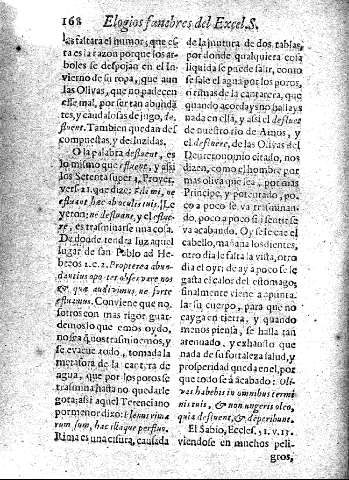 168 Elogios funebres del Excel. S.
les faltara el humor, que esta
es la razon porque los arboles
se despojan en el Invierno
de su ropa, que aun
las Olivas, que no padecen
esse mal, por ser tan abundates,
y caudalosas de jugo, defluent.
Tambien quedan descompuestas,
y desluzidas.
O la palabra defluent, es
lo mismo que effluent, y assi
los Setenta super 4. Prover.
vers. 21. que dize: Fili mi, ne
effluant hac ab oculis tuis. Leyeron:
ne defluant, y el effluere,
es trasminarse una cosa.
De donde tendra luz aquel
lugar de san Pablo ad Hebreos
2. c. 2. Propterea abundantius
oportet observare nos
ea quæ audivimus, ne forte
effluamus. Conviene que nosotros
con mas rigor guardemos
lo que emos oydo,
no sea q nos trasminemos, y
se evacue todo, tomada la
metafora de la cantara de
agua, que por los poros se
trasmina hasta no quedarle
gota; assi aquel Terenciano
por menor dixo: Plenus rimarum
sum, hac illaque perfluo.
Rima es una cisura, causada
de la juntura de dos tablas,
por donde qualquiera cosa
liquida se puede salir, como
se sale el agua por los poros,
o rimas de la cantarera, que
quando acordays no hallays
nada en ella, y assi el defluent
de nuestro rio de Amos, y
el defluere, de las Olivas del
Deuteronomio citado, nos
dizen, como el hombre por
mas oliva que sea, por mas
Principe, y potentado, poco
a poco se va trasminando,
poco a poco sin sentir se
va acabando. Oy se le cae el
cabello, mañana los dientes,
otro dia le falta la vista, otro
dia el oyr; de ay a poco se le
gasta el calor del estomago;
finalmente viene a apuntalar
su cuerpo, para que no
cayga en tierra, y quando
menos piensa, se halla tan
atenuado, y exhausto que
nada de su fortaleza, salud, y
prosperidad queda en el, por
que todo se à acabado: Olivas
habebis in omnibus terminis
tuis, & non ungeris oleo,
quia defluent, & deperibunt.
El Sabio, Eccles. 51. v. 13.
viendose en muchos peligros,